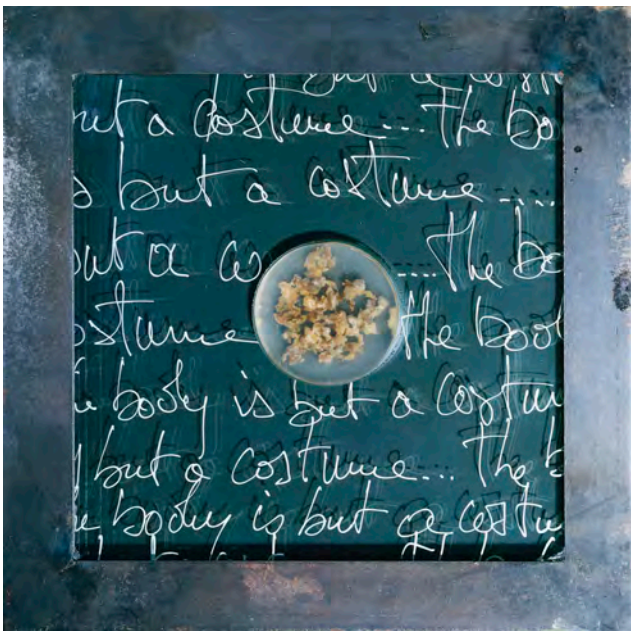 but a costume
but a costume.... The bo
s but a costume ....
but a co ....The bo
ostume the body
e body is but a costum
but a costume... The b
e body is but a costu